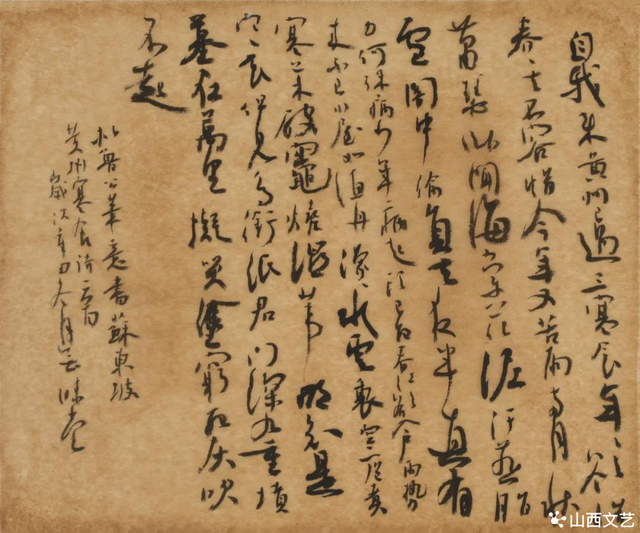 自我来黄州已過三寒食年年欲惜
春春去不容惜今年又苦雨两月秋
萧瑟卧聞海棠花泥汙燕脂
雪闇中偷負去夜半真有
力何殊病少年病起頭已白春江欲入户雨勢
来不已小屋如渔舟濛濛水雲裏空庖煮
寒菜破竈燒濕苇那知是
寒食但见乌銜纸君门深九重墳
墓在萬里擬哭塗窮死灰吹
不起
魯公筆意書蘇東坡
黄州寒食诗二首
歲次辛丑冬月云味堂
山西文艺